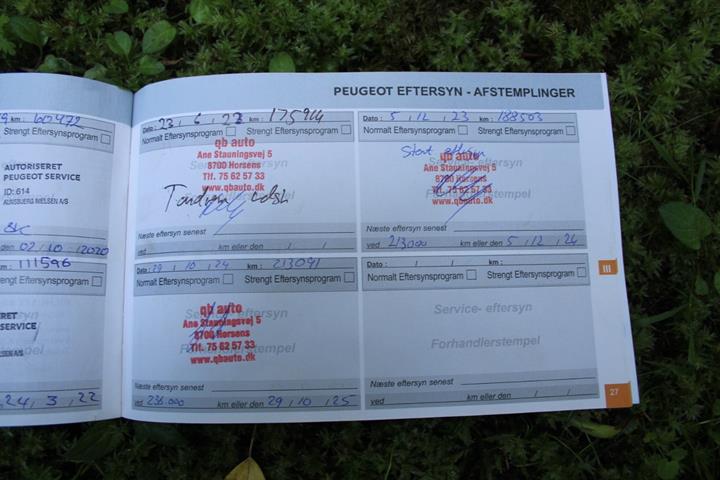 9 km: 60472
Strengt Eftersynsprogram
AUTORISERET
PEUGEOT SERVICE
ID: 614
den 02/10/2020
: 111596
Strengt Eftersynsprogram
RET
SERVICE
24, 3, 22
PEUGEOT EFTERSYN - AFSTEMPLINGER
Dato: 23, 6, 23 km: 175914
Normalt Eftersynsprogram Strengt Eftersynsprogram
Service- eftersyn
qb auto
Ane Stauningsvej 5
8700 Horsens
Tlf. 75 62 57 33
www.qbauto.dk
Næste eftersyn senest
ved km eller den / /
Dato: 5, 12, 23 km: 188503
Normalt Eftersynsprogram Strengt Eftersynsprogram
Stort eftersyn
qb auto
Ane Stauningsvej 5
8700 Horsens
Tlf. 75 62 57 33
www.qbauto.dk
Næste eftersyn senest
ved 213000 km eller den 5, 12, 24
Dato: 29, 10, 24 km: 213091
Normalt Eftersynsprogram Strengt Eftersynsprogram
qb auto
Ane Stauningsvej 5
8700 Horsens
Tlf. 75 62 57 33
www.qbauto.dk
Næste eftersyn senest
ved 238.000 km eller den 29, 10, 25
Dato: / / km:
Normalt Eftersynsprogram Strengt Eftersynsprogram
Service- eftersyn
Forhandlerstempel
Næste eftersyn senest
ved km eller den / /
III
27